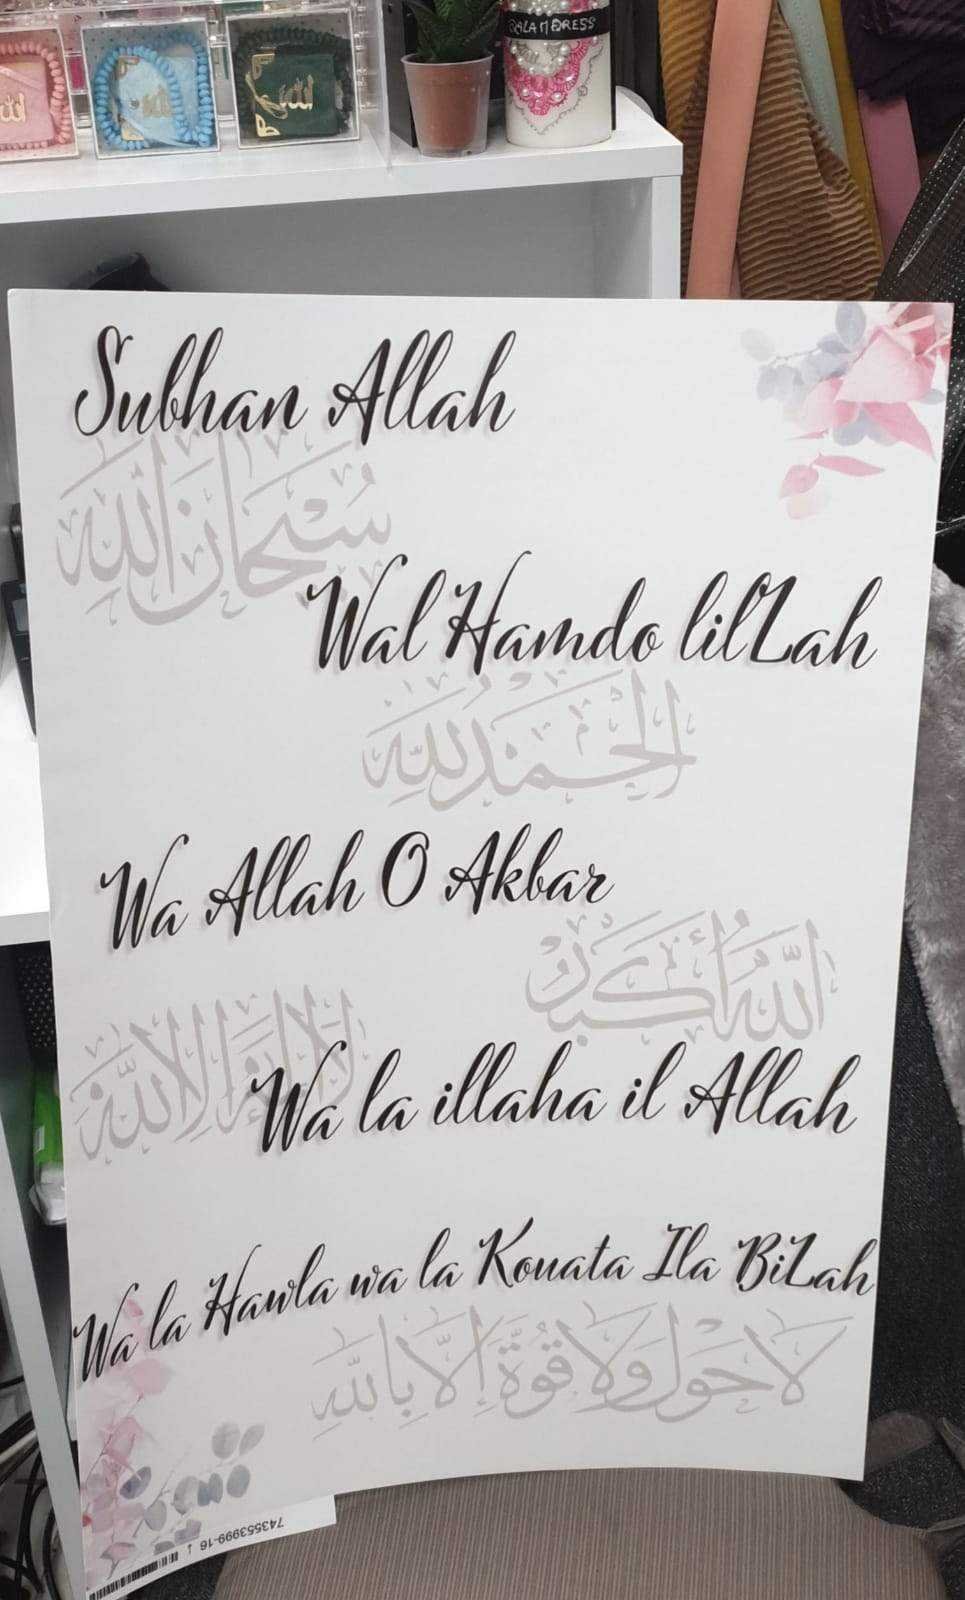 SALAM DRESS
الله
الله
الله
Subhan Allah
سُبْحَانَ اللَّهِ
Wal Hamdo lilLah
الْحَمْدُ لِلَّهِ
Wa Allah O Akbar
اللَّهُ أَكْبَرُ
لَا إِلَهَ إِلَّا اللَّهُ
Wa la illaha il Allah
Wa la Hawla wa la Kouata Ila BiLah
لَا حَوْلَ وَلَا قُوَّةَ إِلَّا بِاللَّهِ
7435553999-16 ↓